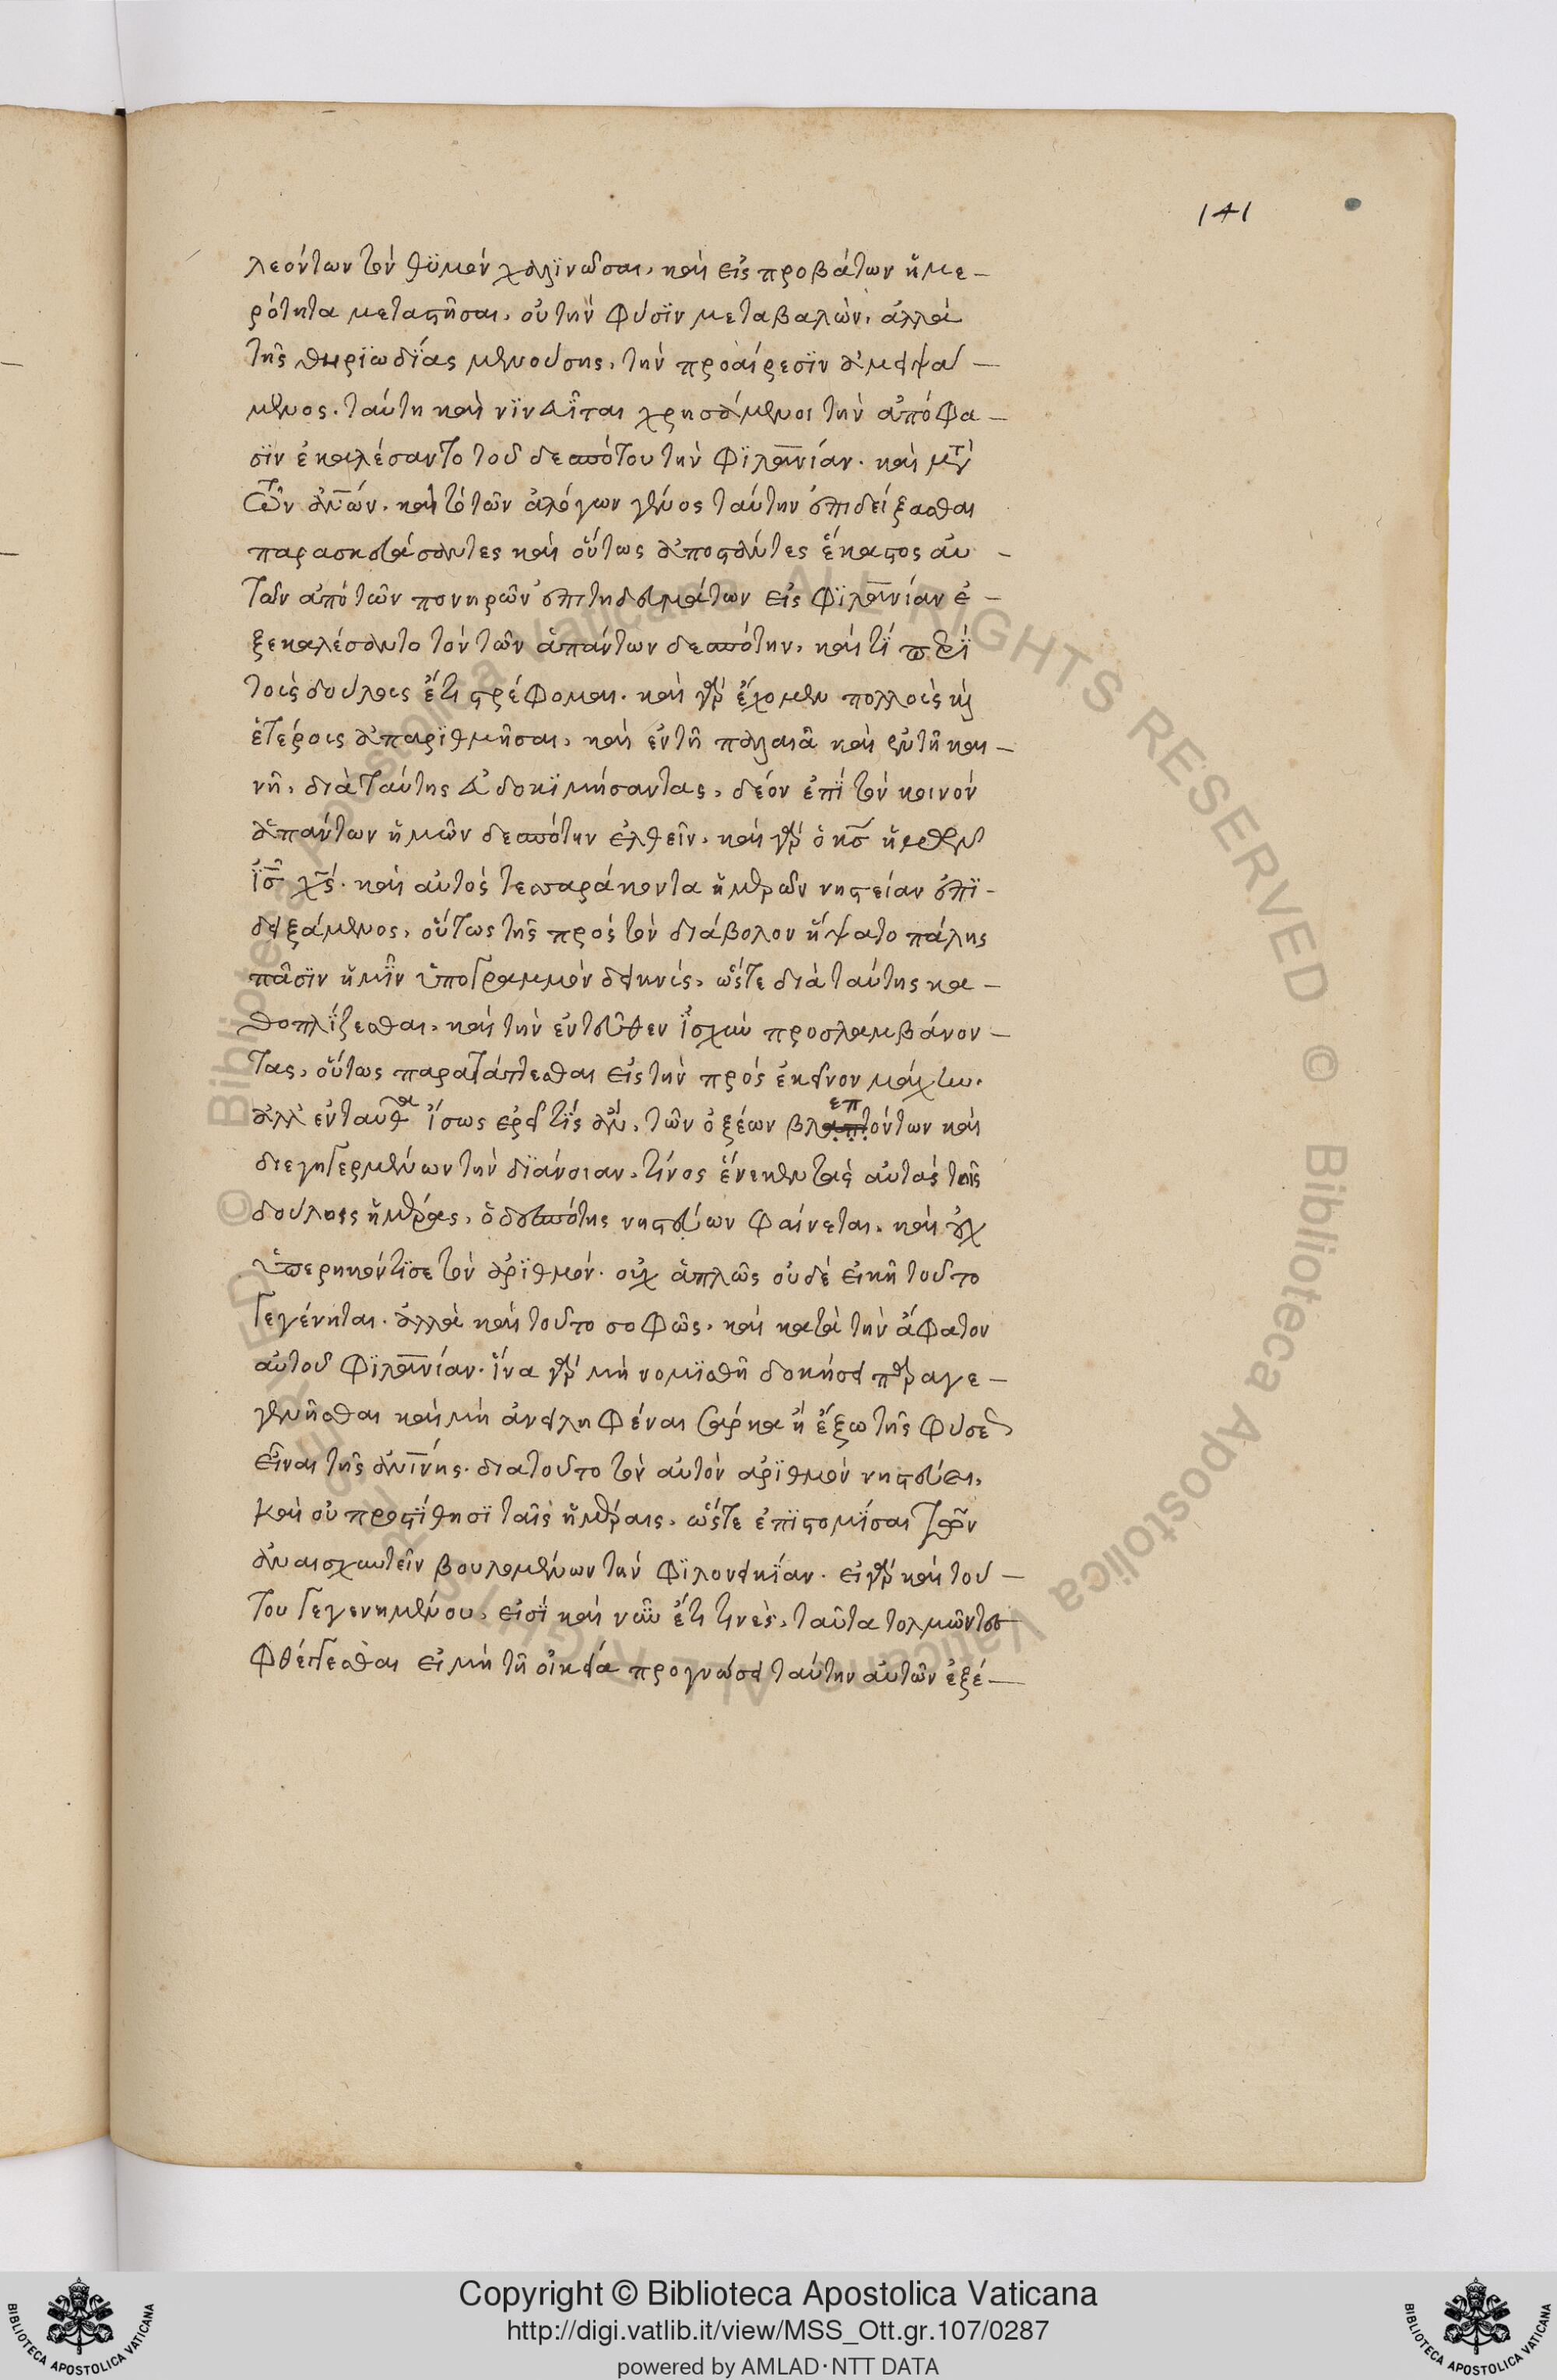 141
λεόντων τὸν θϋμὸν χαλϊνῶσαι, καὶ εἰς προβάτων ἡμε-
ρότητα μεταστῆσαι, οὐ τὴν φύσϊν μεταβαλὼν, ἀλλὰ
τῆς θηρϊωδΐας μενούσης, τὴν προαίρεσϊν ἀμειψά-
μενος. ταύτη καὶ νϊνευῖται χρησάμενοι τὴν ἀπόφα-
σϊν ἐκαλέσαντο τοῦ δεσπότου τὴν φϊλανΐαν. καὶ μτ
τῶν ἀνῶν, καὶ τὸ τῶν ἀλόγων γένος ταύτην ἐπιδείξασθαι
παρασκευάσαντες καὶ οὕτως ἀποστάντες ἕκαστος αὐ-
τῶν ἀπὸ τῶν πονηρῶν ἐπιτηδευμάτων εἰς φϊλανΐαν ἐ-
ξεκαλέσαντο τὸν τῶν ἁπάντων δεσπότην, καὶ τΐ περὶ
τοὺς δούλους ἔτι στρέφομαι. καὶ γὰρ ἔχομεν πολλοὺς καὶ
ἑτέρους ἀπαρϊθμῆσαι, καὶ ἐν τῆ παλαιᾶ καὶ ἐν τῆ και-
νῆ, διὰ ταύτης εὐδοκϊμήσαντας, δέον ἐπΐ τὸν κοινὸν
ἁπάντων ἡμῶν δεσπότην ἐλθεῖν, καὶ γὰρ ὁ κς ἡμῶν
ϊς χς. καὶ αὐτὸς τεσσαράκοντα ἡμερῶν νηστείαν ἐπϊ-
δειξάμενος, οὕτως τῆς πρὸς τὸν διάβολον ἥψατο πάλης
πᾶσϊν ἡμῖν ὑπογραμμὸν δεικνὺς, ὥστε διὰ ταύτης κα-
θοπλΐζεσθαι, καὶ τὴν ἐντεῦθεν ϊσχὺν προσλαμβάνον-
τας, οὕτως παρατάττεσθαι εἰς τὴν πρὸς ἐκεῖνον μάχην.
ἀλλ' ἐνταῦθα ἴσως ἐρεῖ τΐς ἂν, τῶν ὀξέων βλεπόντων καὶ
διεγηγερμένων τὴν δϊάνοιαν, τίνος ἕνεκεν τὰς αὐτὰς τοῖς
δούλοις ἡμέρας, ὁ δεσπότης νηστεύων φαίνεται, καὶ οὐχ
ὑπερηκόντϊσε τὸν ἀρϊθμόν. οὐχ ἁπλῶς οὐδὲ εἰκῆ τοῦτο
γεγένηται. ἀλλὰ καὶ τοῦτο σοφῶς, καὶ κατὰ τὴν ἄφατον
αὐτοῦ φϊλανΐαν. ἵνα γὰρ μὴ νομϊσθῆ δοκήσει παραγε-
γενῆσθαι καὶ μὴ ἀνειληφέναι σάρκα ἢ ἔξω τῆς φύσεως
εἶναι τῆς ἀνΐνης. διατοῦτο τὸν αὐτὸν ἀρϊθμὸν νηστεύει,
καὶ οὐ προστΐθησϊ ταῖς ἡμέραις, ὥστε ἐπϊστομΐσαι τῶν
ἀναισχυντεῖν βουλομένων τὴν φϊλονεικΐαν. εἰ γὰρ καὶ τού-
του γεγενημένου, εἰσΐ καὶ νῦν ἔτι τινὲς, ταῦτα τολμῶντες
φθέγγεσθαι εἰ μὴ τῆ οἰκεία προγνώσει ταύτην αὐτῶν ἐξέ-
Copyright © Biblioteca Apostolica Vaticana
http://digi.vatlib.it/view/MSS_Ott.gr.107/0287
powered by AMLAD·NTT DATA